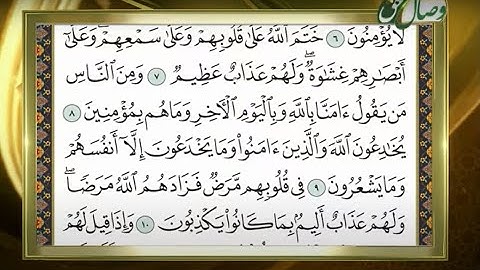 وصال
لَا يُؤْمِنُونَ ٦ خَتَمَ اللَّهُ عَلَىٰ قُلُوبِهِمْ وَعَلَىٰ سَمْعِهِمْ ۖ وَعَلَىٰ
أَبْصَارِهِمْ غِشَاوَةٌ ۖ وَلَهُمْ عَذَابٌ عَظِيمٌ ٧ وَمِنَ النَّاسِ
مَن يَقُولُ ءَامَنَّا بِاللَّهِ وَبِالْيَوْمِ الْآخِرِ وَمَا هُم بِمُؤْمِنِينَ ٨
يُخَادِعُونَ اللَّهَ وَالَّذِينَ ءَامَنُوا وَمَا يَخْدَعُونَ إِلَّا أَنفُسَهُمْ
وَمَا يَشْعُرُونَ ٩ فِي قُلُوبِهِم مَّرَضٌ فَزَادَهُمُ اللَّهُ مَرَضًا ۖ
وَلَهُمْ عَذَابٌ أَلِيمٌ بِمَا كَانُوا يَكْذِبُونَ ١٠ وَإِذَا قِيلَ لَهُمْ